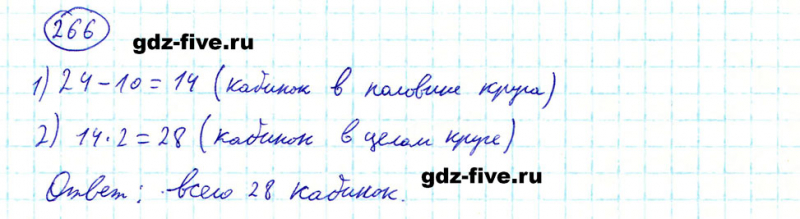 266
gdz-five.ru
1) 24 - 10 = 14 (кабинок в половине круга)
2) 14 · 2 = 28 (кабинок в целом круге)
Ответ: всего 28 кабинок.
gdz-five.ru